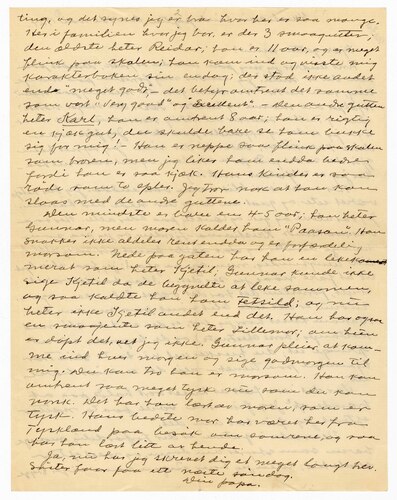 ting, og det synes jeg er bra hvor her er saa mange.
Her i familien hvor jeg bor, er der 3 smaagutter;
den ældste heter Reidar; han er 11 aar, og er meget
flink paa skolen; han kom ind og viste mig
karakterboken sin endag; der stod ikke andet
end "meget godt", – det betyr omtrent det samme
som vort "Very good" og "Excellent". – Den anden gutten
heter Karl; han er omtrent 8 aar; han er rigtig
en kjæk gut, du skulde bare se ham bukke
sig for mig! – Han er neppe saa flink paa skolen
som broren, men jeg liker ham endda bedre
fordi han er saa kjæk. Hans kinder er saa
røde som to epler. Jeg tror nok at han kan
slaas med de andre guttene.
Den mindste er bare en 4-5 aar; han heter
Gunnar, men moren kalder ham "Paasan". Han
snakker ikke aldeles rent endda og er forfærdelig
morsom. Nede paa gaten har han en lekekam-
merat som heter Kjetil; Gunnar kunde ikke
sige Kjetil da de begyndte at leke sammen,
og saa kaldte han ham Fetsild; og nu
heter ikke Kjetil andet end det. Han har ogsaa
en smaajente som heter Lillemor; om hun
er døpt det, vet jeg ikke. Gunnar pleier at kom-
me ind hver morgen og sige godmorgen til
mig. Du kan tro han er morsom. Han kan
omtrent saa meget tysk nu som du kan
norsk. Det har han lært av moren, som er
tysk. Hans bedste mor har været her fra
Tyskland paa besøk om somrene, og saa
har han lært litt av hende.
Ja, nu har jeg skrevet dig et meget langt brev.
papa.